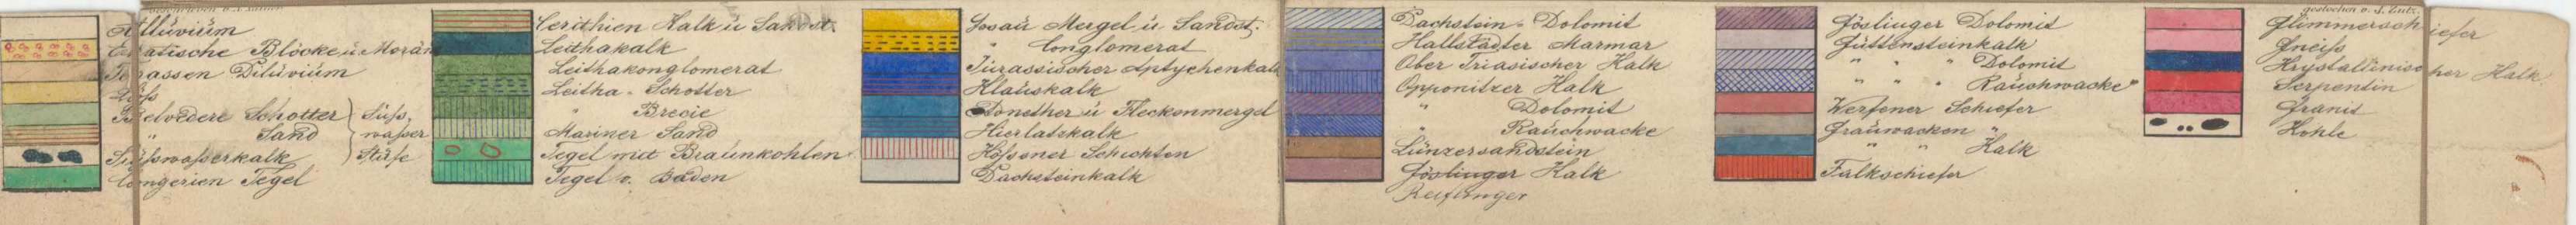 Allúviúm
Erratische Blöcke ú. Morän
Terassen Dilúviúm
Löss
Belvedere Schotter
" Sand
Süſs,
waſser
Stúfe
Süſswaſserkalk
Congerien Tegel
Cerithien Kalk ú Sandst.
Leithakalk
Leithakonglomerat
Leitha - Schotter
" Brecie
Mariner Sand
Tegel mit Braúnkohlen
Tegel v. Baden
Gosaú Mergel ú Sandst.
" Conglomerat
Júrassischer Aptychenkalk
Klauskalk
Adnether ú Fleckenmergel
Hierlatzkalk
Kössener Schichten
Dachsteinkalk
Dachstein - Dolomit
Hallstädter Marmar
Ober Triasischer Kalk
Opponitzer Kalk
" Dolomit
" Raúchwacke
Lúnzersandstein
Göslinger Kalk
Reiflinger
Göslinger Dolomit
Gúttensteinkalk
" " " Dolomit
" " " Raúchwacke"
Werfener Schiefer
Graúwacken "
" " Kalk
Talkschiefer
gestochen v. J. Lutz.
Glimmerschiefer
Gneiſs
Krystallinischer Kalk
Serpentin
Granit
Kohle